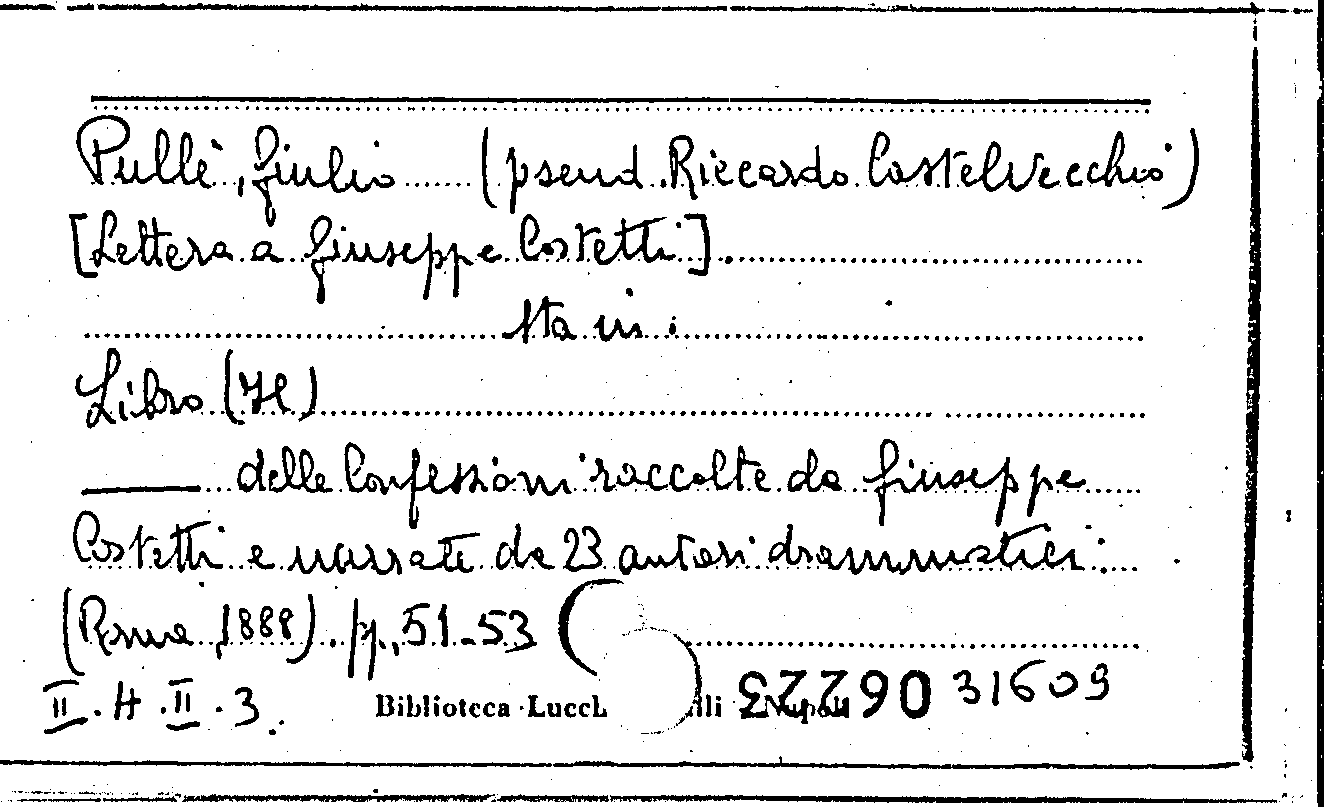 Pullè, Giulio (pseud. Riccardo Castelvecchio)
[Lettera a Giuseppe Costetti].
Sta in:
Libro (Il)
——— delle Confessioni raccolte da Giuseppe
Costetti e narrate da 23 autori drammatici:
(Roma, 1888). pp. 51-53
II. H. II. 3. Biblioteca Lucch lli Napoli 06223 31609